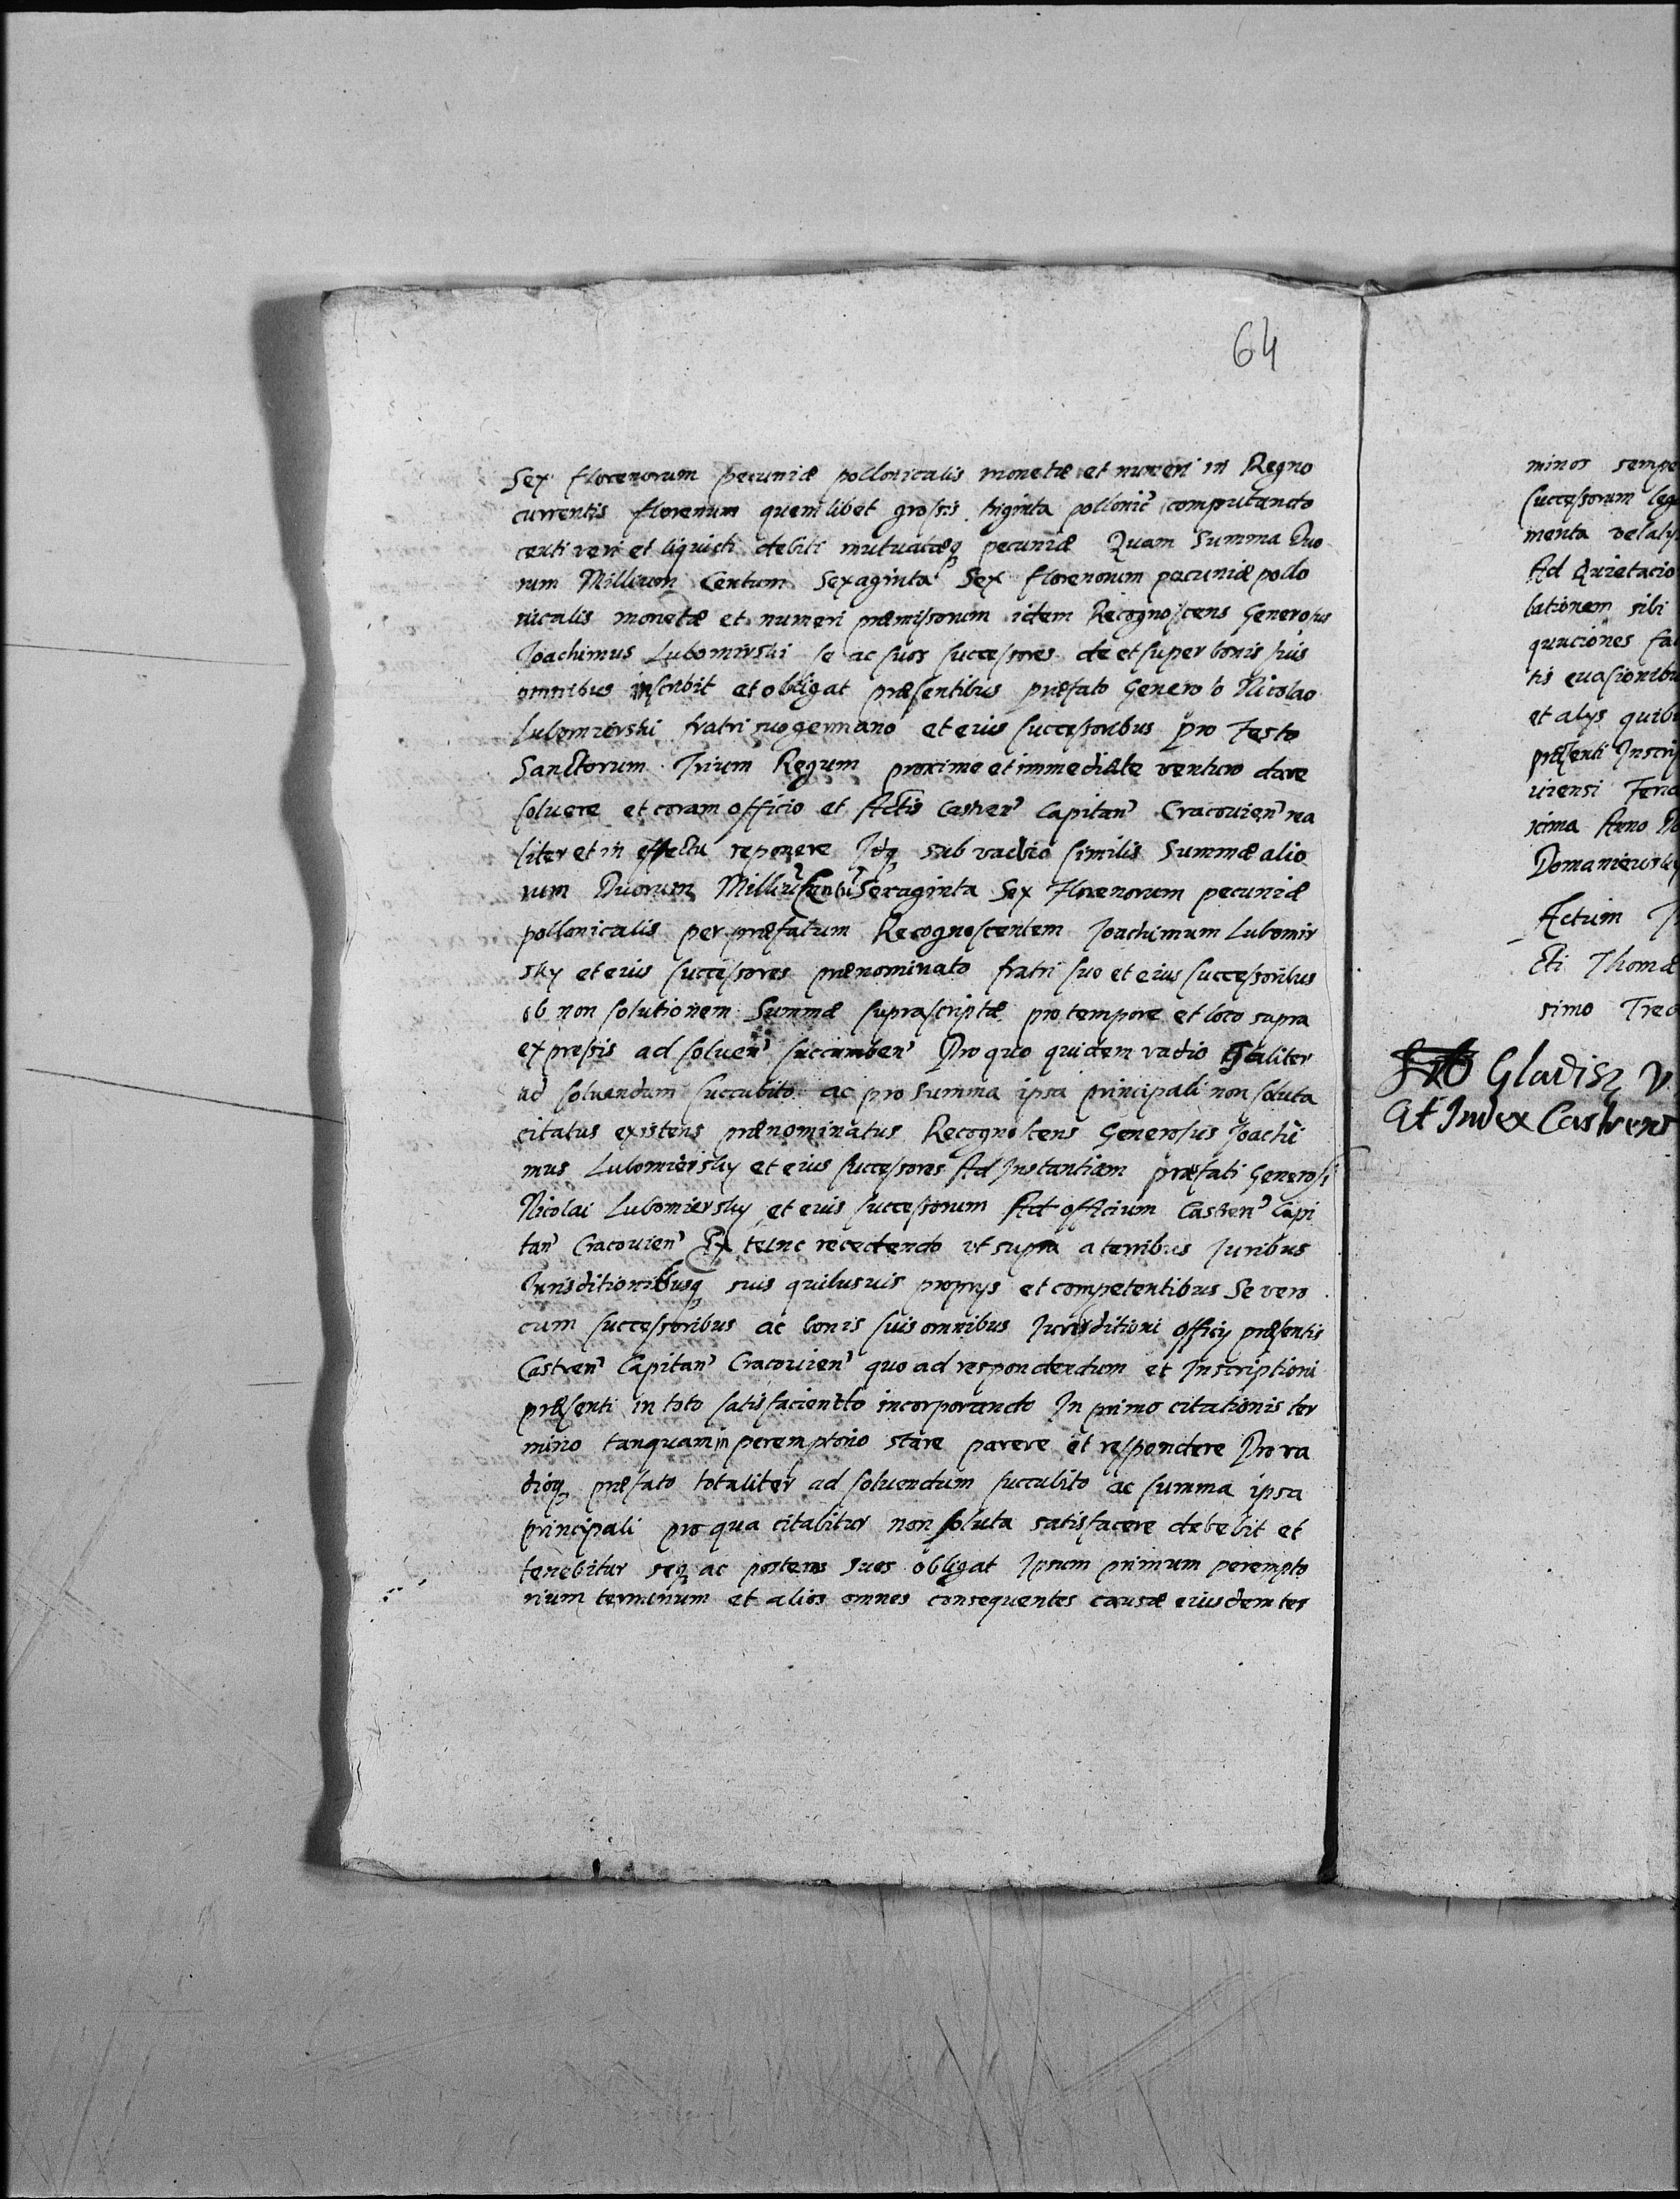 64
Sex florenorum pecuniæ pollonicalis monetæ et numeri in Regno
currentis florenum quemlibet grossis triginta pollonic̄ computando
certi veri et liquidi debiti mutuatæq₃ pecuniæ Quam Summa Duo
rum Millium Centum Sexaginta Sex florenorum pecuniæ pollo
nicalis monetæ et numeri præmissorum idem Recognoscens Generosus
Joachimus Lubomirski se ac suos successores de et super bonis suis
omnibus inscribit et obligat præsentibus præfato Generoso Nicolao
Lubomierski fratri suo germano et eius successoribus pro Festo
Sanctorum Trium Regum proxime et immediate venturo dare
soluere et coram officio et Actis Castren̄ Capitan̄ Cracouien̄ rea
liter et in effectu reponere Idq₃ sub vadio similis Summæ alio
rum Duorum Milliū Centū Sexaginta Sex Florenorum pecuniæ
pollonicalis per præfatum Recognoscentem Joachimum Lubomir
sky et eius successores prænominato fratri suo et eius successoribus
ob non solutionem Summæ suprascriptæ pro tempore et loco supra
expressis ad soluen̄ succumben̄ Pro quo quidem vadio taliter
ad soluendum succubito ac pro summa ipsa principali non soluta
citatus existens prænominatus Recognoscens Generosus Joachi
mus Lubomiersky et eius successores Ad Instantiam præfati Generosi
Nicolai Lubomiersky et eius successorum Ad officium Castren̄ Capi
tan̄ Cracouien̄ Ex tunc recedendo vt supra a terris Juribus
Jurisditionibusq₃ suis quibusuis proprys et competentibus Se vero
cum successoribus ac bonis suis omnibus Jurisditioni officy præsentis
Castren̄ Capitan̄ Cracouien̄ quo ad respondendum et Inscriptioni
præsenti in toto satisfaciendo incorporando In primo citationis ter
mino tanquam in peremptorio stare parere et respondere Pro va
dioq₃ præfato totaliter ad soluendum succubito ac summa ipsa
principali pro qua citabitur non soluta satisfacere debebit et
tenebitur seq₃ ac posteros suos obligat Ipsum primum perempto
rium terminum et alios omnes consequentes causæ eiusdem ter
minos sempe
successorum leg
menta vel aly
Ad Quietacio
bationem sibi
quaciones fa
tis euasionibu
et alys quib
præsenti Inscrip
uiensi Feria
xima Anno D
Domaniewsky
Actum
Thomæ
simo Trec
Gladisz V
et Judex Castrens